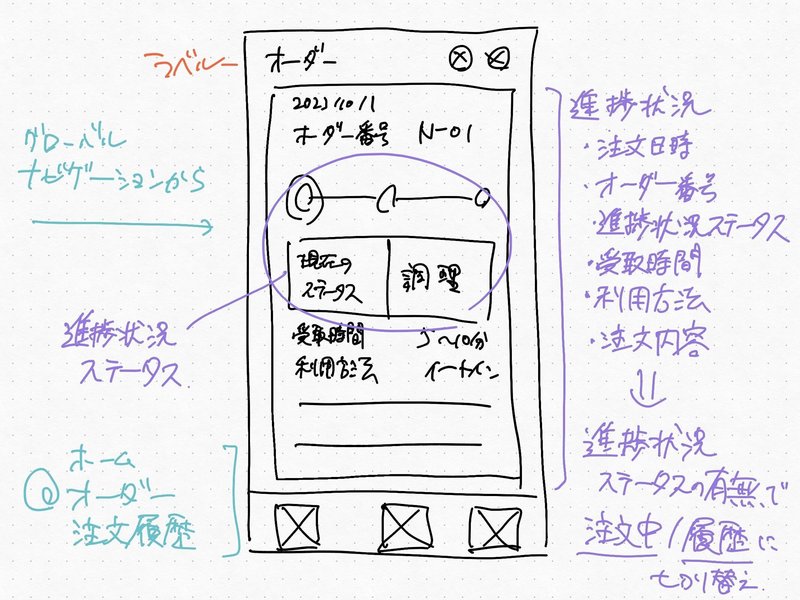 ラベル
オーダー
2021/10/11
オーダー番号 N-01
現在の
ステータス
調理
受取時間 5〜10分
利用方法 イートイン
グローバル
ナビゲーションから
進捗状況
ステータス
ホーム
オーダー
注文履歴
進捗状況
・注文日時
・オーダー番号
・進捗状況ステータス
・受取時間
・利用方法
・注文内容
進捗状況
ステータスの有無で
注文中/履歴に
切り替え